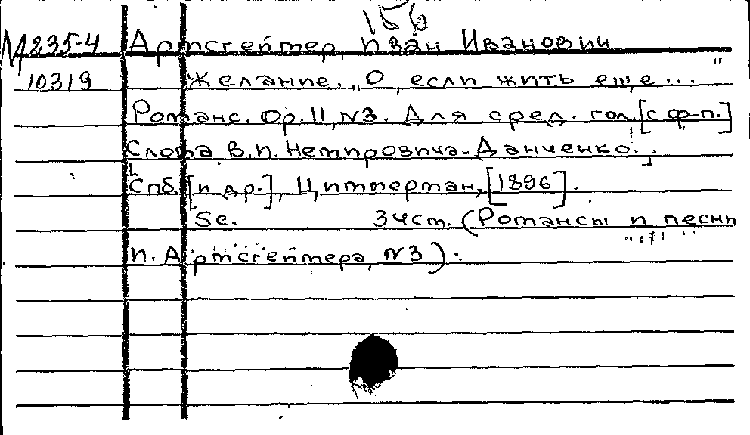 156
М235-4 Армсгеймер, Иван Иванович
10319 Желание. „О, если жить еще..."
Романс. Op. 11, N3. Для сред. гол. [с ф-п.]
Слова В. И. Немировича-Данченко.
Спб. [и др.], Циммерман, [1896].
5с. 3 ч.ст. (Романсы и песни
И. Армсгеймера, N3).